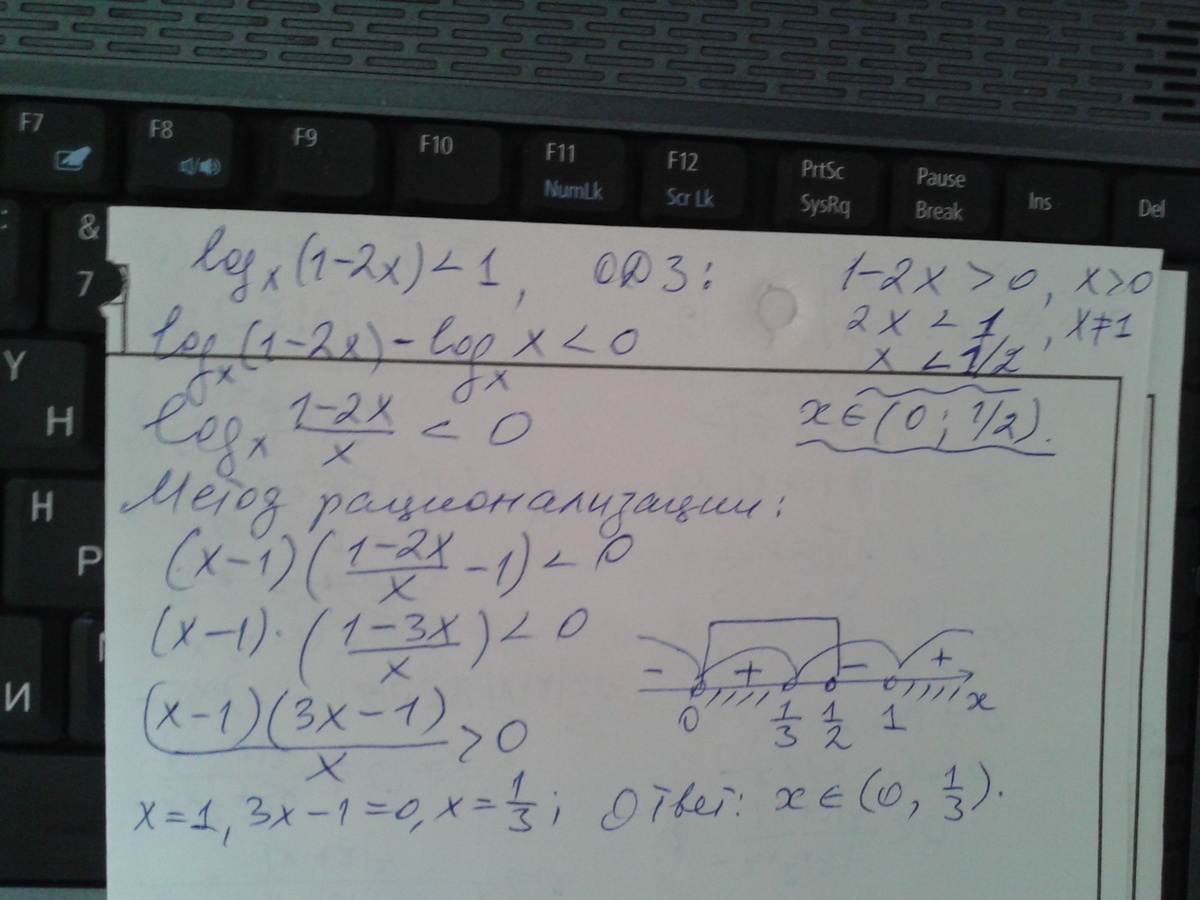 F7 F8 F9 F10 F11 F12 PrtSc Pause Ins Del
NumLk Scr Lk SysRq Break
&
7
Y
H
H
P
И
log_x (1-2x) < 1, ОДЗ: 1-2x > 0, x>0
2x < 1, x≠1
log_x (1-2x) - log_x x < 0 x < 1/2
log_x \frac{1-2x}{x} < 0 x ∈ (0; 1/2).
Метод рационализации:
(x-1)(\frac{1-2x}{x} - 1) < 0
(x-1)·(\frac{1-3x}{x}) < 0
\frac{(x-1)(3x-1)}{x} > 0
- + - +
0 \frac{1}{3} \frac{1}{2} 1 x
x=1, 3x-1=0, x=\frac{1}{3}; Ответ: x ∈ (0, \frac{1}{3}).